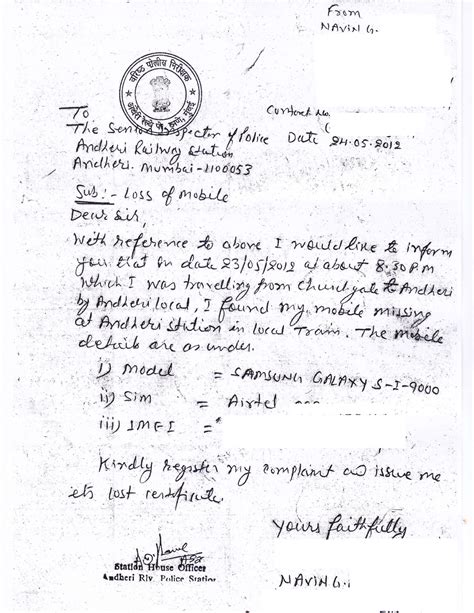 From
NAVIN G.
वरिष्ठ पोलीस निरीक्षक
अंधेरी रेल्वे पो. ठाणे, मुंबई
Contact No.
To
The Senior Inspector of Police Date 24.05.2012
Andheri Railway Station
Andheri. Mumbai-400053
Sub :- Loss of Mobile
Dear Sir,
With reference to above I would like to inform
you that on date 23/05/2012 at about 8.30 P.M
which I was travelling from Churchgate to Andheri
by Andheri local, I found my mobile missing
at Andheri Station in local Train. The mobile
details are as under.
i) Model = SAMSUNG GALAXY S-I-9000
ii) Sim = Airtel
iii) IMEI =
Kindly register my complaint and issue me
its lost certificate.
Yours faithfully
ASI
Station House Officer
Andheri Rly. Police Station
NAVIN G.